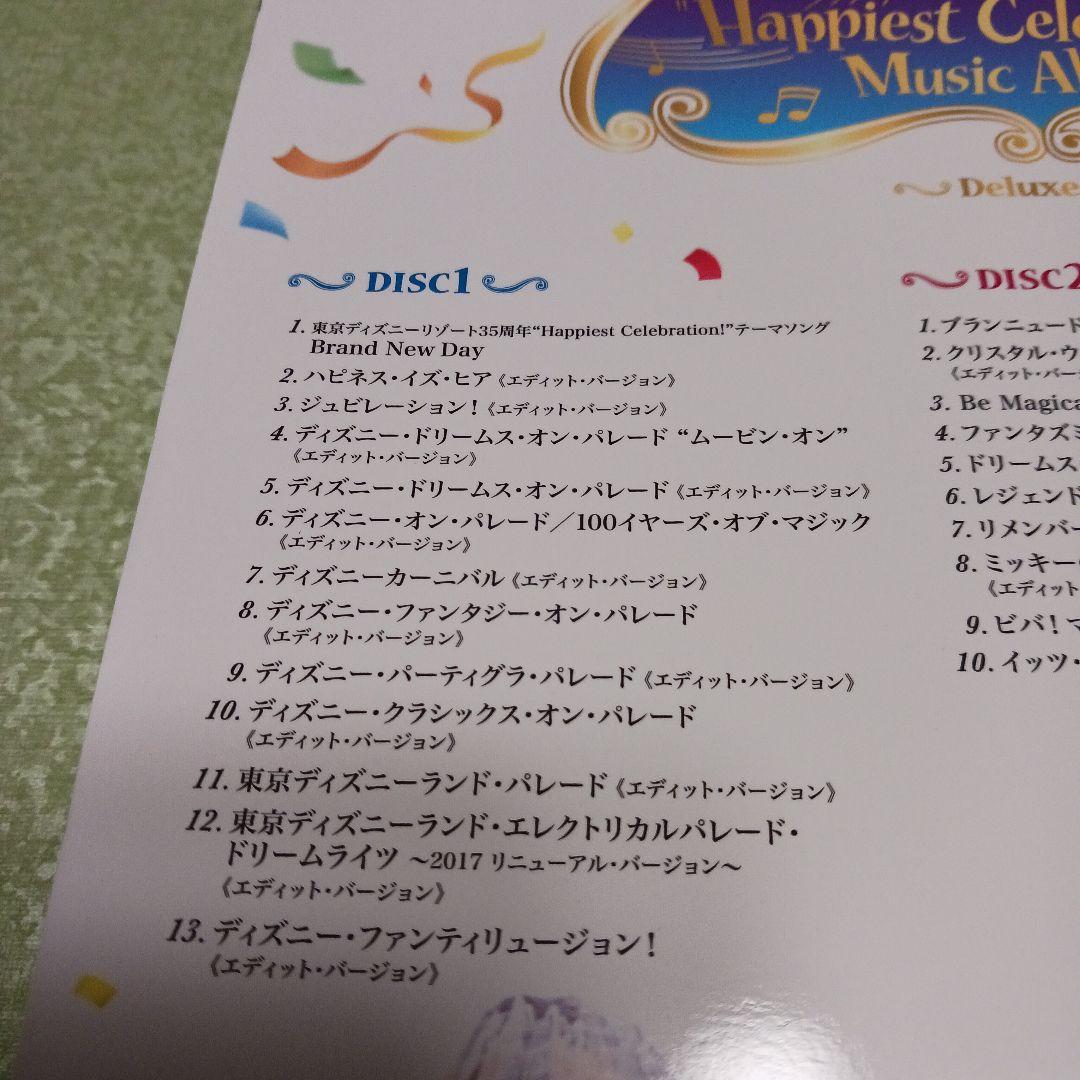 "Happiest
Music
Deluxe
DISC1
1. 東京ディズニーリゾート35周年“Happiest Celebration!”テーマソング
Brand New Day
2. ハピネス・イズ・ヒア《エディット・バージョン》
3. ジュビレーション！《エディット・バージョン》
4. ディズニー・ドリームス・オン・パレード “ムービン・オン”
《エディット・バージョン》
5. ディズニー・ドリームス・オン・パレード《エディット・バージョン》
6. ディズニー・オン・パレード／100イヤーズ・オブ・マジック
《エディット・バージョン》
7. ディズニーカーニバル《エディット・バージョン》
8. ディズニー・ファンタジー・オン・パレード
《エディット・バージョン》
9. ディズニー・パーティグラ・パレード《エディット・バージョン》
10. ディズニー・クラシックス・オン・パレード
《エディット・バージョン》
11. 東京ディズニーランド・パレード《エディット・バージョン》
12. 東京ディズニーランド・エレクトリカルパレード・
ドリームライツ ～2017 リニューアル・バージョン～
《エディット・バージョン》
13. ディズニー・ファンティリュージョン！
《エディット・バージョン》
DISC2
1. ブランニュード
2. クリスタル・ウ
《エディット・バー
3. Be Magica
4. ファンタズミ
5. ドリームス
6. レジェンド
7. リメンバー
8. ミッキー・
《エディット
9. ビバ！マ
10. イッツ・